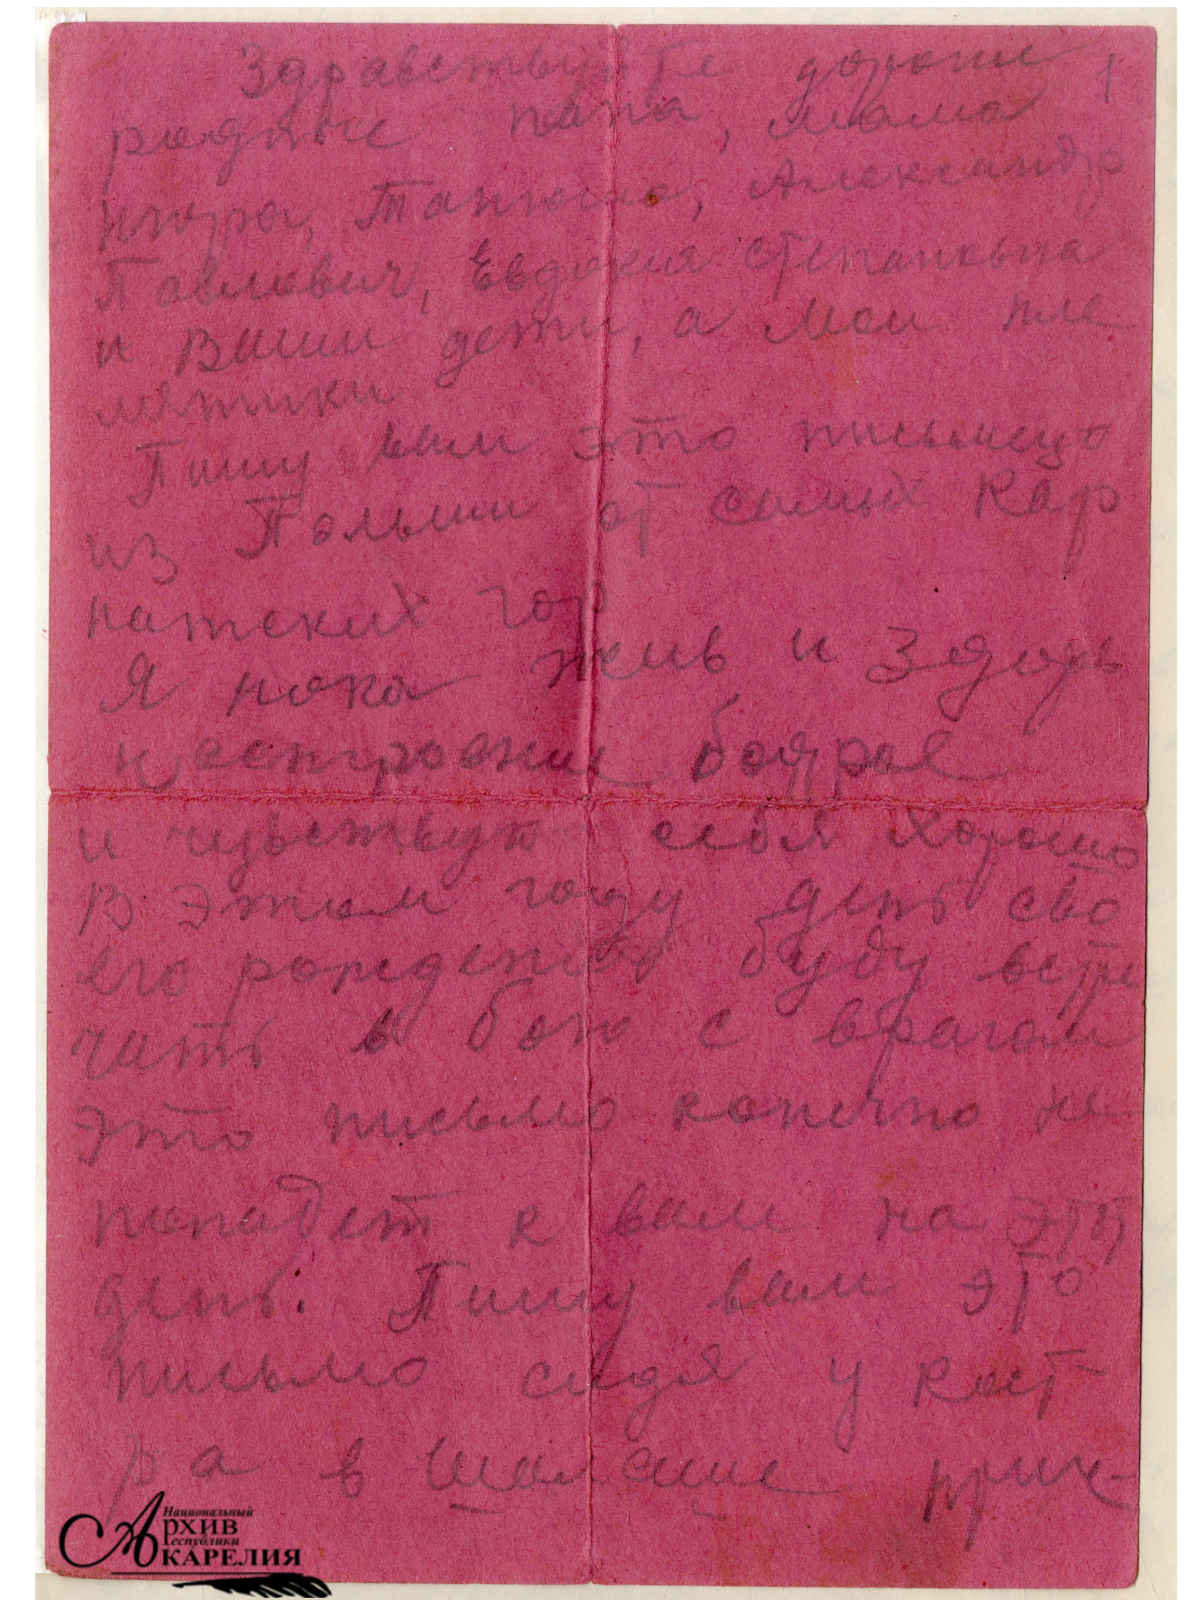 Здравствуйте дорогие 1
родные папа, мама
нюра, Танюша, Александр
Павлович, Евдокия Степановна
и Ваши дети, а мои пле
мятики
Пишу вам это письмецо
из Польши от самых Кар
патских гор
Я пока жив и здоров
настроение бодрое
и чувствую себя хорошо
В этом году день сво
его рождения буду встре
чать в бою с врагом
Это письмо конечно не
попадет к вам на этот
день. Пишу вам это
письмо сидя у кост-
ра в шалаше
Национальный
Архив
Республики
Карелия